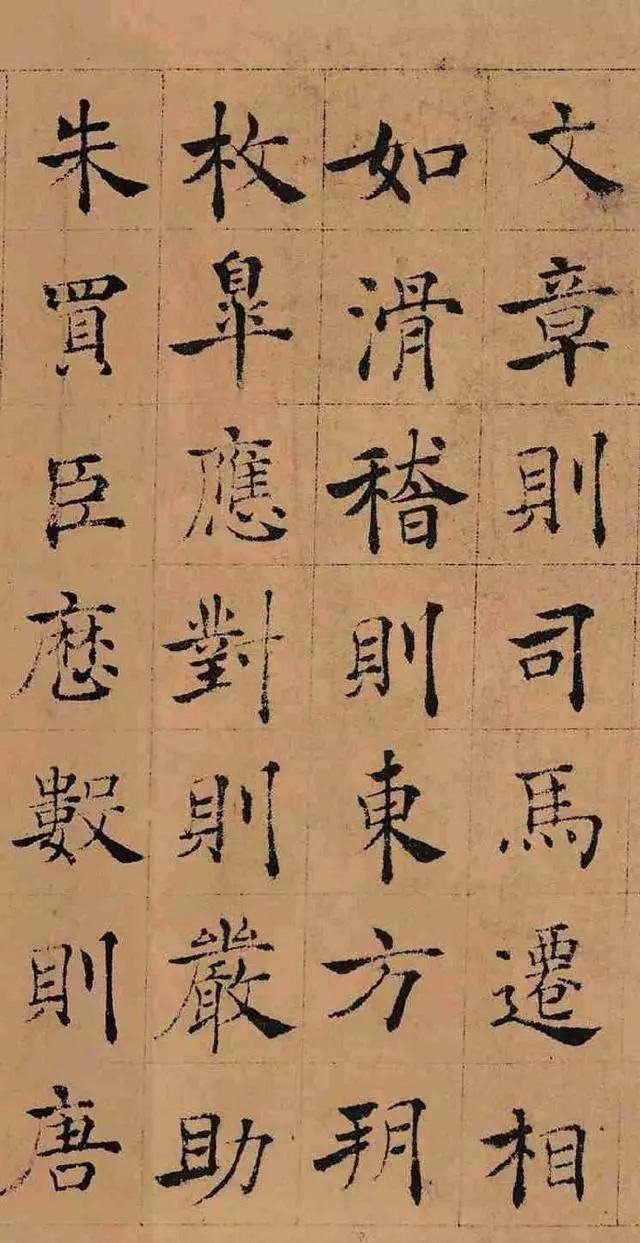 文章則司馬遷相
如滑稽則東方朔
枚皐應對則嚴助
朱買臣厯數則唐